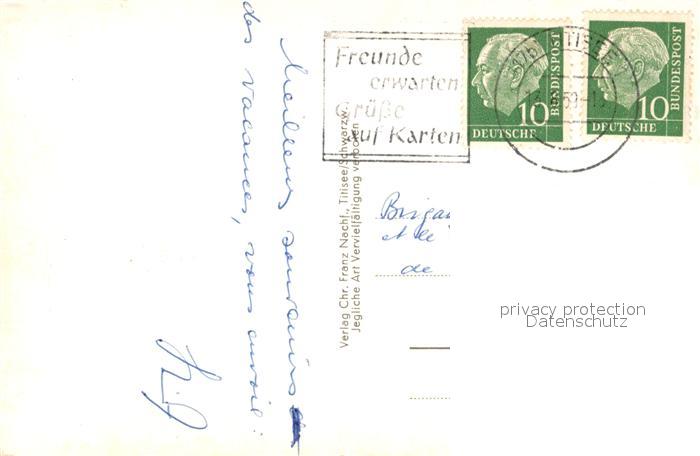 Meilleurs souvenirs
des vacances, vous envoie :
Freunde
erwarten
Grüße
auf Karten
TITISEE
10
DEUTSCHE
BUNDESPOST
10
DEUTSCHE
BUNDESPOST
Verlag Chr. Franz Nachf., Titisee/Schwarzw.
Jegliche Art Vervielfältigung verboten
et de
de
privacy protection
Datenschutz